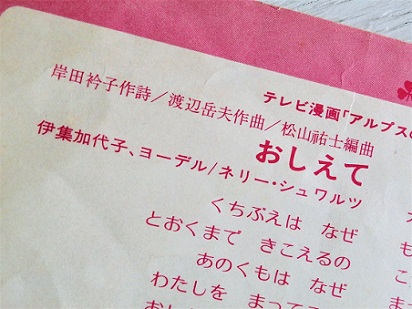 テレビ漫画「アルプスの
岸田衿子作詩/渡辺岳夫作曲/松山祐士編曲
おしえて
伊集加代子、ヨーデル/ネリー・シュワルツ
くちぶえは なぜ
とおくまで きこえるの
あのくもは なぜ
わたしを まってる